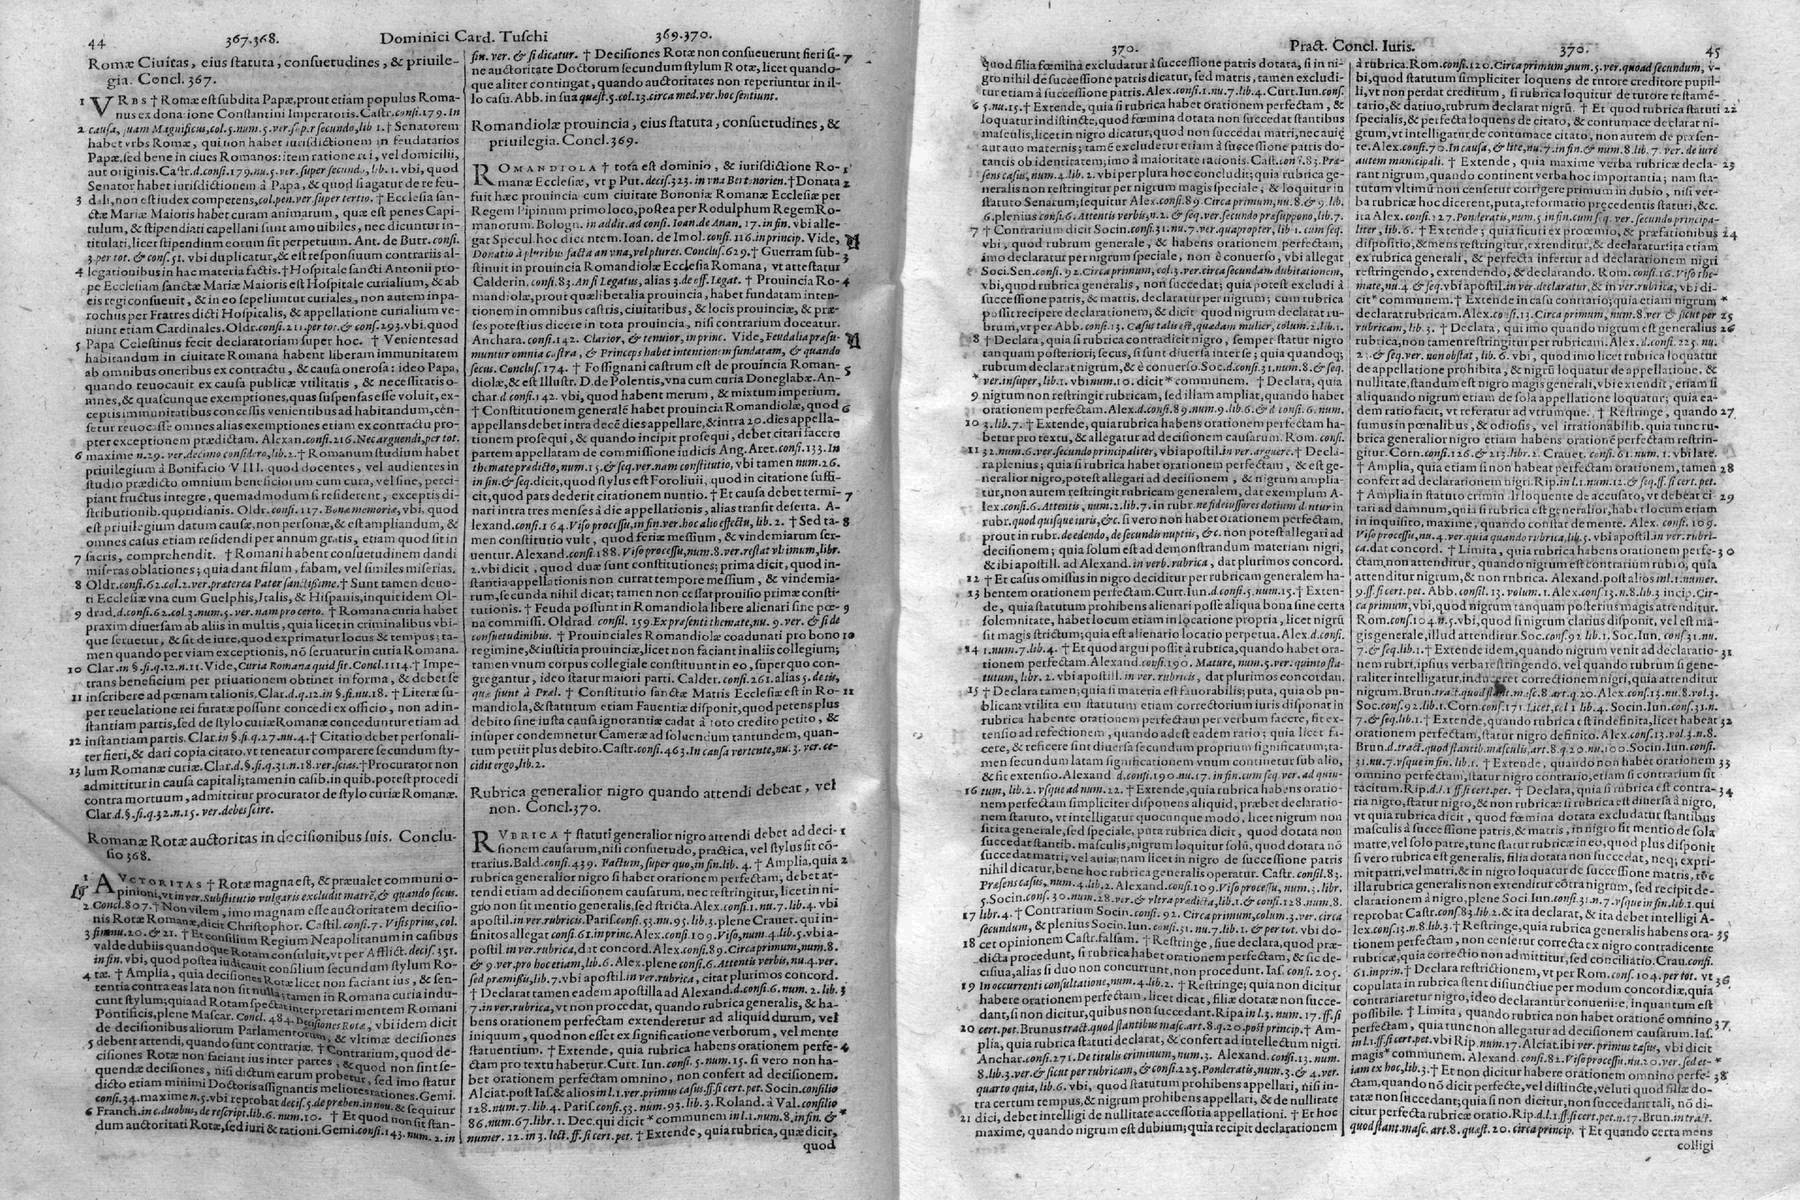 44 367.368. Dominici Card. Tuschi 369.370.
Romæ Ciuitas, eius statuta, consuetudines, & priuile-
gia. Concl. 367.
1 VRBS † Romæ est subdita Papæ, prout etiam populus Roma-
nus ex donatione Constantini Imperatoris. Castr. consi. 179. In
2 causa, quam Magnificus, col. 5. num. 5. ver. sup. r secundo, lib 1. † Senatorem
habet vrbs Romæ, qui non habet iurisdictionem in feudatarios
Papæ, sed bene in ciues Romanos: item ratione rei, vel domicilii,
aut originis. Castr. d. consi. 179. nu. 5. ver. super secundo, lib. 1. vbi, quod
Senator habet iurisdictionem à Papa, & quod si agatur de re feu-
3 dali, non est iudex competens, col. pen. ver. super tertio. † Ecclesia san-
ctæ Mariæ Maioris habet curam animarum, quæ est penes Capi-
tulum, & stipendiati capellani sunt amouibiles, nec dicuntur in-
titulati, licet stipendium eorum sit perpetuum. Ant. de Butr. consi.
3. per tot. & cons. 51. vbi duplicatur, & est responsiuum contrariis al-
4 legationibus in hac materia factis. † Hospitale sancti Antonii pro-
pe Ecclesiam sanctæ Mariæ Maioris est Hospitale curialium, & ab
eis regi consueuit, & in eo sepeliuntur curiales, non autem in pa-
rochus per Fratres dicti Hospitalis, & appellatione curialium ve-
niunt etiam Cardinales. Oldr. consi. 211. per tot. & cons. 293. vbi, quod
5 Papa Celestinus fecit declaratoriam super hoc. † Venientes ad
habitandum in ciuitate Romana habent liberam immunitatem
ab omnibus oneribus ex contractu, & causa onerosa: ideo Papa,
quando reuocauit ex causa publicæ vtilitatis, & necessitatis o-
mnes, & quascunque exemptiones, quas suspensas esse voluit, ex-
ceptis immunitatibus concessis venientibus ad habitandum, cēn-
setur reuocasse omnes alias exemptiones etiam ex contractu pro-
pter exceptionem prædictam. Alexan. consi. 216. Nec arguendi, per tot.
6 maxime n. 29. ver. decimo considero, lib. 2. † Romanum studium habet
priuilegium à Bonifacio VIII. quod docentes, vel audientes in
studio prædicto omnium beneficiorum cum cura, vel sine, perci-
piant fructus integre, quemadmodum si residerent, exceptis di-
stributionib. quotidianis. Oldr. consi. 117. Bonæ memoriæ, vbi, quod
est priuilegium datum causæ, non personæ, & est ampliandum, &
omnes casus etiam residendi per annum gratis, etiam quod sit in
7 sacris, comprehendit. † Romani habent consuetudinem dandi
miseras oblationes; quia dant filum, fabam, vel similes miserias.
8 Oldr. consi. 62. col. 2. ver. præterea Pater sanctissime. † Sunt tamen deuo-
ti Ecclesiæ vna cum Guelphis, Italis, & Hispanis, inquit idem Ol-
9 drad. d. consi. 62. col. 3. num. 5. ver. nam pro certo. † Romana curia habet
praxim diuersam ab aliis in multis, quia licet in criminalibus vbi-
que seruetur, & sit de iure, quod exprimatur locus & tempus: ta-
men quando per viam exceptionis, nō seruatur in curia Romana.
10 Clar. in §. fi. q. 12. n. 11. Vide, Curia Romana quid sit. Concl. 1114. † Impe-
trans beneficium per priuationem obtinet in forma, & debet se
11 inscribere ad pœnam talionis, Clar. d. q. 12. in §. fi. nu. 18. † Literæ su-
per reuelatione rei furatæ possunt concedi ex officio, non ad in-
stantiam partis, sed de stylo curiæ Romanæ conceduntur etiam ad
12 instantiam partis. Clar. in §. fi. q. 27. nu. 4. † Citatio debet personali-
ter fieri, & dari copia citato, vt teneatur comparere secundum sty-
13 lum Romanæ curiæ. Clar. d. §. fi. q. 31. n. 18. ver. scias. † Procurator non
admittitur in causa capitali; tamen in casib. in quib. potest procedi
contra mortuum, admittitur procurator de stylo curiæ Romanæ.
Clar. d. §. fi. q. 32. n. 15. ver. debes scire.
Romanæ Rotæ auctoritas in decisionibus suis. Conclu-
sio 368.
1 AVCTORITAS † Rotæ magna est, & præualet communi o-
pinioni, vt in ver. Substitutio vulgaris excludit matrē, & quando secus.
2 Concl. 807. † Non vilem, imo magnam esse auctoritatem decisio-
nis Rotæ Romanæ, dicit Christophor. Castil. consi. 7. Visis prius, col.
3 fi. nu. 20. & 21. † Et consilium Regium Neapolitanum in casibus
valde dubiis quandoque Rotam consuluit, vt per Afflict. decis. 351.
in fin. vbi, quod postea iudicauit consilium secundum stylum Ro-
4 tæ. † Amplia, quia decisiones Rotæ licet non faciant ius, & sen-
tentia contra eas lata non sit nulla; tamen in Romana curia indu-
cunt stylum; quia ad Rotam spectat interpretari mentem Romani
Pontificis, plene Mascar. Concl. 484. Decisiones Rotæ, vbi idem dicit
de decisionibus aliorum Parlamentorum, & vltimæ decisiones
5 debent attendi, quando sunt contrariæ. † Contrarium, quod de-
cisiones Rotæ non faciant ius inter partes, & quod non sint se-
quendæ decisiones, nisi dictum earum probetur, sed imo statur
dicto etiam minimi Doctoris assignantis meliores rationes. Gemi.
consi. 34. maxime n. 5. vbi reprobat decis. 5. de præben. in nou. & sequitur
6 Franch. in c. duobus, de rescript. lib. 6. num. 10. † Et quod non sit stan-
dum auctoritati Rotæ, sed iuri & rationi. Gemi. consi. 143. num. 2. in
fin. ver. & si dicatur. † Decisiones Rotæ non consueuerunt fieri si- 7
ne auctoritate Doctorum secundum stylum Rotæ, licet quando-
que aliter contingat, quando auctoritates non reperiuntur in il-
lo casu. Abb. in sua quæst. 5. col. 13. circa med. ver. hoc sentiunt.
Romandiolæ prouincia, eius statuta, consuetudines, &
priuilegia. Concl. 369.
ROMANDIOLA † tota est dominio, & iurisdictione Ro- 1
manæ Ecclesiæ, vt p Put. decis. 323. in vna Bertonorien. † Donata 2
fuit hæc prouincia cum ciuitate Bononiæ Romanæ Ecclesiæ per
Regem Pipinum primo loco, postea per Rodulphum Regem Ro-
manorum. Bologn. in addit. ad consi. Ioan. de Anan. 17. in fin. vbi alle-
gat Specul. hoc dicentem. Ioan. de Imol. consi. 116. in princip. Vide,
Donatio à pluribus facta an vna, vel plures. Conclus. 629. † Guerram sub- 3
stinuit in prouincia Romandiolæ Ecclesia Romana, vt attestatur
Calderin. consi. 83. An si Legatus, alias 3. de off. Legat. † Prouincia Ro- 4
mandiolæ, prout quælibet alia prouincia, habet fundatam inten-
tionem in omnibus castris, ciuitatibus, & locis prouinciæ, & præ-
ses potest ius dicere in tota prouincia, nisi contrarium doceatur.
Anchara. consi. 142. Clarior, & tenuior, in princ. Vide, Feudalia præsu-
muntur omnia castra, & Princeps habet intentionem fundatam, & quando
secus. Conclus. 174. † Fossignani castrum est de prouincia Roman- 5
diolæ, & est Illustr. D. de Polentis, vna cum curia Doneglabæ. An-
char. d consi. 142. vbi, quod habent merum, & mixtum imperium.
† Constitutionem generalē habet prouincia Romandiolæ, quod 6
appellans debet intra decē dies appellare, & intra 20. dies appella-
tionem prosequi, & quando incipit prosequi, debet citari facere
partem appellatam de commissione iudicis Ang. Aret. consi. 133. In
themate prædicto, num. 15. & seq. ver. nam constitutio, vbi tamen num. 26.
in fin. & seq. dicit, quod stylus est Foroliuii, quod in citatione suffi-
cit, quod pars dederit citationem nuntio. † Et causa debet termi- 7
nari intra tres menses à die appellationis, alias transit deserta. A-
lexand. consi. 164. Viso processu, in fin. ver. hoc alio effectu, lib. 2. † Sed ta- 8
men constitutio vult, quod feriæ messium, & vindemiarum ser-
uentur. Alexand. consi. 188. Viso processu, num. 8. ver. restat vltimum, libr.
2. vbi dicit, quod duæ sunt constitutiones; prima dicit, quod in-
stantia appellationis non currat tempore messium, & vindemia-
rum, secunda nihil dicat; tamen non cessat prouisio primæ consti-
tutionis. † Feuda possunt in Romandiola libere alienari sine pœ- 9
na commissi. Oldrad. consil. 159. Ex præsenti themate, nu. 9. ver. & si de
consuetudinibus. † Prouinciales Romandiolæ coadunati pro bono 10
regimine, & iustitia prouinciæ, licet non faciant in aliis collegium;
tamen vnum corpus collegiale constituunt in eo, super quo con-
gregantur, ideo statur maiori parti. Calder. consi. 261. alias 5. de iis,
quæ fiunt à Præl. † Constitutio sanctæ Matris Ecclesiæ est in Ro- 11
mandiola, & statutum etiam Fauentiæ disponit, quod petens plus
debito sine iusta causa ignorantiæ cadat à toto credito petito, &
insuper condemnetur Cameræ ad soluendum tantundem, quan-
tum petiit plus debito. Castr. consi. 463. In causa vertente, nu. 3. ver. ce-
cidit ergo, lib. 2.
Rubrica generalior nigro quando attendi debeat, vel
non. Concl. 370.
RVBRICA † statuti generalior nigro attendi debet ad deci- 1
sionem causarum, nisi consuetudo, practica, vel stylus sit cō-
trarius. Bald. consi. 439. Factum, super quo, in fin. lib. 4. † Amplia, quia 2
rubrica generalior nigro si habet orationem perfectam, debet at-
tendi etiam ad decisionem causarum, nec restringitur, licet in ni-
gro non sit mentio generalis, sed stricta. Alex. consi. 1. nu. 7. lib. 4. vbi
apostil. in ver. rubricis. Paris. consi. 53. nu. 95. lib. 3. plene Crauet. qui in-
finitos allegat consi. 61. in princ. Alex. consi. 109. Viso, num. 4. lib. 5. vbi a-
postil. in ver. rubrica, dat concord. Alex. consi. 89. Circa primum, num. 8.
& 9. ver. pro hoc etiam, lib. 6. Alex. plene consi. 6. Attentis verbis, nu. 4. ver.
sed præmissis, lib. 7. vbi apostil. in ver. rubrica, citat plurimos concord.
† Declarat tamen eadem apostilla ad Alexand. d. consi. 6. num. 2. lib. 3
7. in ver. rubrica, vt non procedat, quando rubrica generalis, & ha-
bens orationem perfectam extenderetur ad aliquid durum, vel
iniquum, quod non esset ex significatione verborum, vel mente
statuentium. † Extende, quia rubrica habens orationem perfe- 4
ctam pro textu habetur. Curt. Iun. consi. 5. num. 15. si vero non ha-
bet orationem perfectam omnino, non confert ad decisionem.
Alciat. post Ias. & alios in l. 1. ver. primus casus. ff. si cert. pet. Socin. consilio
128. num. 7. lib. 4. Paris. consi. 53. num. 93. lib. 3. Roland. à Val. consilio
86. num. 67. lib. 1. Dec. qui dicit * communem in l. 1. num. 8. in fin. & *
numer. 12. in 3. lect. ff. si cert. pet. † Extende, quia rubrica, quæ dicit,
quod
370. Pract. Concl. Iuris. 370. 45
quod filia fœmina excludatur à successione patris dotata, si in ni-
gro nihil de successione patris dicatur, sed matris, tamen excludi-
tur à successione patris. Alex. consi. 1. nu. 7. lib. 4. Curt. Iun. consi.
6 5. nu. 15. † Extende, quia si rubrica habet orationem perfectam, &
loquatur indistincte, quod fœmina dotata non succedat stantibus
masculis, licet in nigro dicatur, quod non succedat matri, nec auię
aut auo maternis; tamē excludetur etiam à successione patris do-
tantis ob identitatem; imo à maioritate rationis. Cast. consi. 83. Præ-
sens casus, num. 4. lib. 2. vbi per plura hoc concludit; quia rubrica ge-
neralis non restringitur per nigrum magis speciale; & loquitur in
statuto Senarum; sequitur Alex. consi. 89. Circa primum, nu. 8. & 9. lib.
6. plenius consi. 6. Attentis verbis, n. 2. & seq. ver. secundo præsuppono, lib. 7.
7 † Contrarium dicit Socin. consi. 31. nu. 7. ver. quapropter, lib. 1. cum seq.
vbi, quod rubrum generale, & habens orationem perfectam,
imo declaratur per nigrum speciale, non è conuerso, vbi allegat
Soci. Sen. consi. 92. Circa primum, col. 3. ver. circa secundam dubitationem,
vbi, quod rubrica generalis, non succedat; quia potest excludi à
successione patris, & matris, declaratur per nigrum; cum rubrica
possit recipere declarationem, & dicit quod nigrum declarat ru-
brum, vt per Abb. consi. 13. Casus talis est, quædam mulier, colum. 2. lib. 1.
8 † Declara, quia si rubrica contradicit nigro, semper statur nigro
tanquam posteriori; secus, si sunt diuersa inter se; quia quandoq;
rubrum declarat nigrum, & è conuerso. Soc. d. consi. 31. num. 8. & seq.
* ver. insuper, lib. 1. vbi num. 10. dicit * communem. † Declara, quia
9 nigrum non restringit rubricam, sed illam ampliat, quando habet
orationem perfectam. Alex. d. consi. 89. num. 9. lib. 6. & d consi. 6. num.
10 3. lib. 7. † Extende, quia rubrica habens orationem perfectam ha-
betur pro textu, & allegatur ad decisionem causarum. Rom. consi.
11 32. num. 6. ver. secundo principaliter, vbi apostil. in ver. arguere. † Decla-
ra plenius; quia si rubrica habet orationem perfectam, & est ge-
neralior nigro, potest allegari ad decisionem, & nigrum amplia-
tur, non autem restringit rubricam generalem, dat exemplum A-
lex. consi. 6. Attentis, num. 2. lib. 7. in rubr. ne fideiussores dotium dentur in
rubr. quod quisque iuris, &c. si vero non habet orationem perfectam,
prout in rubr. de edendo, de secundis nuptiis, &c. non potest allegari ad
decisionem; quia solum est ad demonstrandum materiam nigri,
& ibi apostil. ad Alexand. in verb. rubrica, dat plurimos concord.
12 † Et casus omissus in nigro deciditur per rubricam generalem ha-
13 bentem orationem perfectam. Curt. Iun. d. consi. 5. num. 15. † Exten-
de, quia statutum prohibens alienari posse aliqua bona sine certa
solemnitate, habet locum etiam in locatione propria, licet nigrū
sit magis strictum; quia est alienario locatio perpetua. Alex. d. consi.
14 1. num. 7. lib. 4. † Et quod argui possit à rubrica, quando habet ora-
tionem perfectam. Alexand. consi. 190. Mature, num. 5. ver. quinto sta-
tutum, lib. 2. vbi apostill. in ver. rubricis, dat plurimos concordan.
15 † Declara tamen; quia si materia est fauorabilis; puta, quia ob pu-
blicam vtilita em statutum etiam correctorium iuris disponat in
rubrica habente orationem perfectam per verbum facere, fit ex-
tensio ad refectionem, quando adest eadem ratio; quia licet fa-
cere, & reficere sint diuersa secundum proprium significatum; ta-
men secundum latam significationem vnum continetur sub alio,
& sic extensio. Alexand d. consi. 190. nu. 17. in fin. cum seq. ver. ad quin-
16 tum, lib. 2. vsque ad num. 22. † Extende, quia rubrica habens oratio-
nem perfectam simpliciter disponens aliquid, præbet declaratio-
nem statuto, vt intelligatur quocunque modo, licet nigrum non
sit ita generale, sed speciale, puta rubrica dicit, quod dotata non
succedat stantib. masculis, nigrum loquitur solū, quod dotata nō
succedat matri, vel auiæ; nam licet in nigro de successione patris
nihil dicatur, bene hoc rubrica generalis operatur. Castr. consil. 83.
Præsens casus, num. 4. lib. 2. Alexand. consi. 109. Viso processu, num. 3. libr.
5. Socin. consi. 30. num. 28. ver. & vltra prædicta, lib. 1. & consi. 128. num. 8.
17 libr. 4. † Contrarium Socin. consi. 92. Circa primum, colum. 3. ver. circa
secundum, & plenius Soc. Iun. consi. 31. nu. 7. lib. 1. & per tot. vbi do-
18 cet opinionem Castr. falsam. † Restringe, siue declara, quod præ-
dicta procedunt, si rubrica habet orationem perfectam, & sic de-
cisiua, alias si duo non concurrunt, non procedunt. Ias. consi. 205.
19 In occurrenti consultatione, num. 4. lib. 2. † Restringe; quia non dicitur
habere orationem perfectam, licet dicat, filiæ dotatæ non succe-
dant, si non dicitur, quibus non succedant. Ripa in l. 3. num. 17. ff. si
20 cert. pet. Brunus tract. quod stantibus masc. art. 8. q. 20. post princip. † Am-
plia, quia rubrica statuti declarat, & confert ad intellectum nigri.
Anchar. consi. 271. De titulis criminum, num. 3. Alexand. consi. 13. num.
8. lib. 3. ver. & sicut per rubricam, & consi. 225. Ponderatis, num. 3. & 4. ver.
quarto quia, lib. 6. vbi, quod statutum prohibens appellari, nisi in-
tra certum tempus, & nigrum prohibens appellari, & de nullitate
21 dici, debet intelligi de nullitate accessoria appellationi. † Et hoc
maxime, quando nigrum est dubium; quia recipit declarationem
à rubrica. Rom. consi. 120. Circa primum, num. 5. ver. quoad secundum, v-
bi, quod statutum simpliciter loquens de tutore creditore pupil-
li, vt non perdat creditum, si rubrica loquitur de tutore testamē-
tario, & datiuo, rubrum declarat nigrū. † Et quod rubrica statuti 22
specialis, & perfecta loquens de citato, & contumace declarat ni-
grum, vt intelligatur de contumace citato, non autem de præsen-
te. Alex. consi. 70. In causa, & lite, nu. 7. in fin. & num. 8. lib. 7. ver. de iure
autem municipali. † Extende, quia maxime verba rubricæ decla- 23
rant nigrum, quando continent verba hoc importantia; nam sta-
tutum vltimū non censetur corrigere primum in dubio, nisi ver-
ba rubricæ hoc dicerent, puta, reformatio præcedentis statuti, &c.
ita Alex. consi. 127. Ponderatis, num. 5. in fin. cum seq. ver. secundo principa-
liter, lib. 6. † Extende; quia sicuti ex proœmio, & præfationibus 24
dispositio, & mens restringitur, extenditur, & declaratur ita etiam
ex rubrica generali, & perfecta infertur ad declarationem nigri
restringendo, extendendo, & declarando. Rom. consi. 16. Viso the-
mate, nu. 4 & seq. vbi apostil. in ver. declaratur, & in ver. rubrica, vbi di-
cit * communem. † Extende in casu contrario; quia etiam nigrum *
declarat rubricam. Alex. consi. 13. Circa primum, num. 8. ver & sicut per 25
rubricam, lib. 3. † Declara, qui imo quando nigrum est generalius 26
rubrica, non tamen restringitur per rubricam. Alex. d. consi. 225. nu.
2. & seq. ver. non obstat, lib. 6. vbi, quod imo licet rubrica loquatur
de appellatione prohibita, & nigrū loquatur de appellatione, &
nullitate, standum est nigro magis generali, vbi extendit, etiam si
aliquando nigrum etiam de sola appellatione loquatur; quia ea-
dem ratio facit, vt referatur ad vtrumque. † Restringe, quando 27
sumus in pœnalibus, & odiosis, vel irrationabilib. quia tunc ru-
brica generalior nigro etiam habens orationē perfectam restrin-
gitur. Corn. consi. 126. & 213. libr. 2. Crauet. consi. 61. num. 1. vbi late.
† Amplia, quia etiam si non habeat perfectam orationem, tamen 28
confert ad declarationem nigri. Rip. in l. 1. num. 12. & seq. ff. si cert. pet.
† Amplia in statuto criminali loquente de accusato, vt debeat ci- 29
tari ad damnum, quia si rubrica est generalior, habet locum etiam
in inquisito, maxime, quando constat de mente. Alex. consi. 109.
Viso processu, nu. 4. ver. quia quando rubrica, lib. 5. vbi apostil. in ver. rubri-
ca. dat concord. † Limita, quia rubrica habens orationem perfe- 30
ctam, non attenditur, quando nigrum est contrarium rubro, quia
attenditur nigrum, & non rnbrica. Alexand. post alios in l. 1. numer.
9. ff. si cert. pet. Abb. consil. 13. volum. 1. Alex. consi. 13. nu. 8. lib. 3 incip. Cir-
ca primum, vbi, quod nigrum tanquam posterius magis attenditur.
Rom. consi. 104. n. 5. vbi, quod si nigrum clarius disponit, vel est ma-
gis generale, illud attenditur. Soc. consi. 92 lib. 1. Soc. Iun. consi. 31. nu.
7. & seq. lib. 1. † Extende idem, quando nigrum venit ad declaratio- 31
nem rubri, ipsius verba restringendo, vel quando rubrum si gene-
raliter intelligatur, induceret correctionem nigri, quia attenditur
nigrum. Brun. tract. quod stant. masc. 8. art. q. 20. Alex. consi. 13. nu. 8. vol. 3.
Soc. consi. 92. lib. 1. Corn. consi. 171. Licet, col. 1 lib. 4. Socin. Iun. consi. 31. n.
7. & seq. lib. 1. † Extende, quando rubrica est indefinita, licet habeat 32
orationem perfectam, statur nigro declaranti. Alex. consi. 13. vol. 3. n. 8.
Brun d. tract. quod stantib. masculis, art. 8. q. 20. nu. 100. Socin. Iun. consi.
31. nu. 7. vsque in fin. lib. 1. † Extende, quando non habet orationem 33
omnino perfectam, statur nigro contrario, etiam si contrarium sit
tacitum. Rip. d. l. 1 ff. si cert. pet. † Declara, quia si rubrica est contra- 34
ria nigro, statur nigro, & non rubricæ: si rubrica est diuersa à nigro,
vt quia rubrica dicit, quod fœmina dotata excludatur stantibus
masculis à successione patris, & matris, in nigro sit mentio de sola
matre, vel solo patre, tunc statur rubricæ in eo, quod plus disponit
si vero rubrica est generalis, filia dotata non succedat, neq; expri-
mit patri, vel matri, & in nigro loquatur de successione matris, tūc
illa rubrica generalis non extenditur cōtra nigrum, sed recipit de-
clarationem à nigro, plene Soci Iun. consi. 31. n. 7. vsque in fin. lib. 1. qui
reprobat Castr. consi. 83. lib. 2. & ita declarat, & ita debet intelligi A-
lex. consi. 13. n. 8. lib. 3. † Restringe, quia rubrica generalis habens ora- 35
tionem perfectam, non censetur correcta ex nigro contradicente
quia correctio non admittitur, sed conciliatio. Crau. consi.
61. in prin. † Declara restrictionem, vt per Rom. consi. 104. per tot. vt 36
copulata in rubrica stent disiunctiue per modum concordiæ, quia
contrariaretur nigro, ideo declarantur conuenire, inquantum est
possibile. † Limita, quando rubrica non habet orationem 37
perfectam, quia tunc non allegatur ad decisionem causarum. Ias.
in l. 1. ff. si cert. pet. vbi Rip. num. 17. Alciat. ibi ver. primus casus, vbi dicit
magis * communem. Alexand. consi. 82. Viso processu, nu. 20. ver. sed et- *
iam ex hoc, lib. 3. † Et non dicitur habere orationem omnino perfe- 38
ctam, quando nō dicit perfecte, vel distincte, veluti quod filiæ do-
tatæ non succedant; quia si non dicitur, non succedant tali, nō di-
citur perfecta rubricæ oratio. Rip. d. l. 1. ff. si cert. pet. n. 17. Brun. in tract.
quod stant. masc. art. 8. quæst. 20. circa princip. † Et quando certa mens
colligi